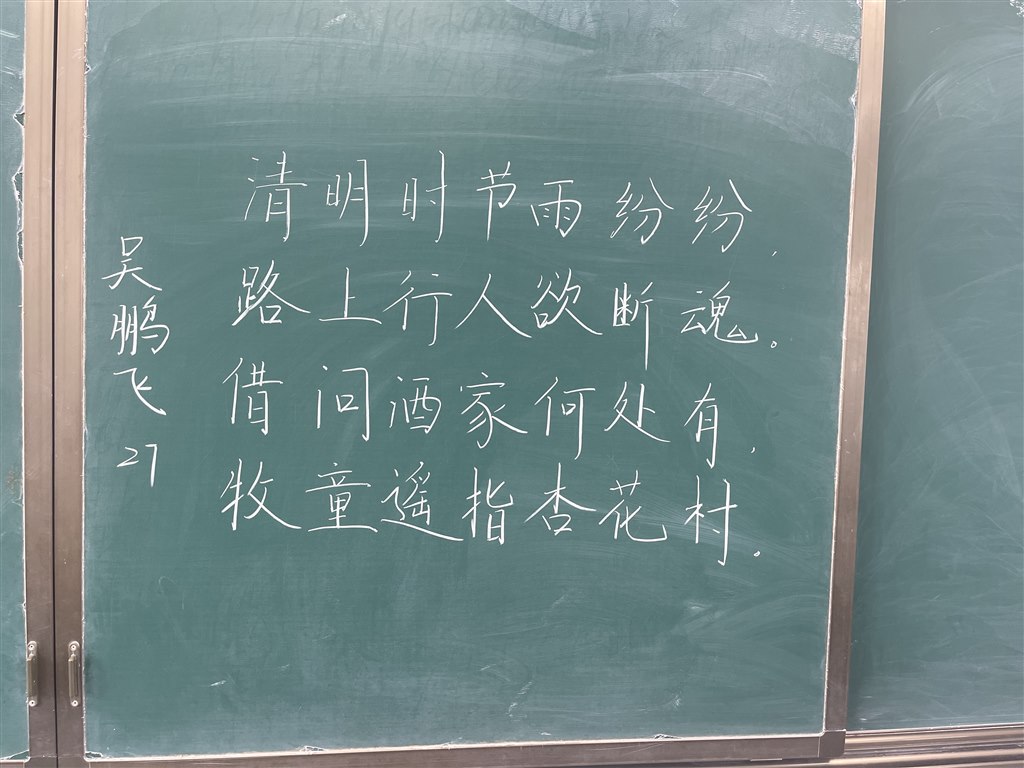 清明时节雨纷纷，
路上行人欲断魂。
借问酒家何处有，
牧童遥指杏花村.
吴鹏飞
27